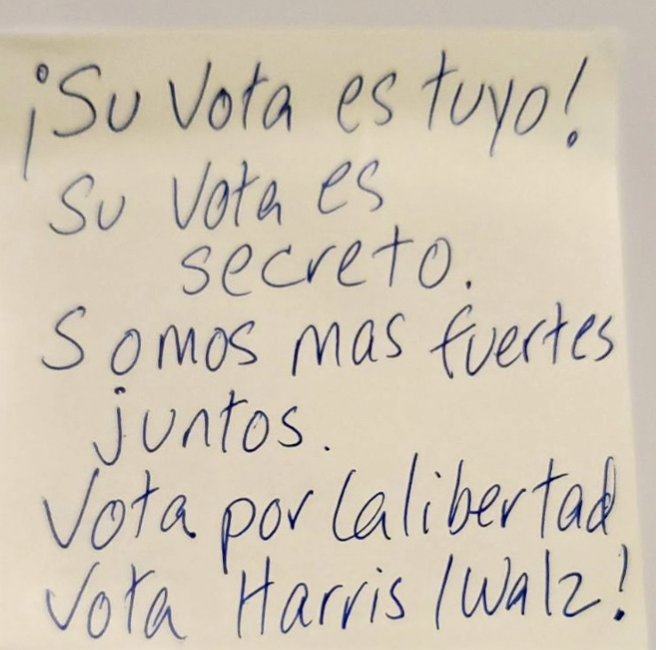 ¡Su Vota es tuyo!
Su Vota es
secreto.
Somos mas fuertes
juntos.
Vota por la libertad
Vota Harris/Walz!